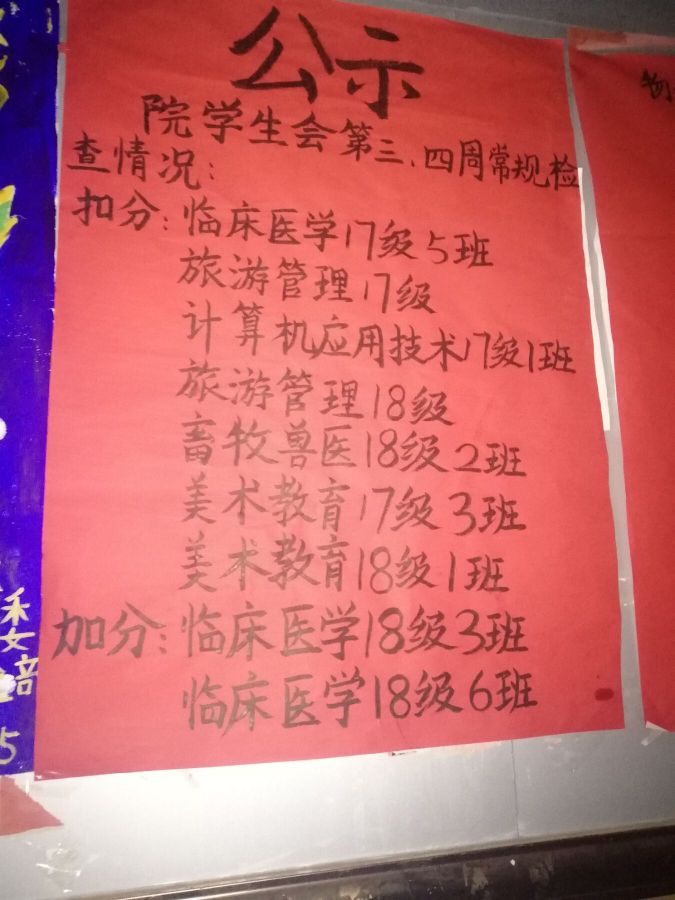 公示
院学生会第三、四周常规检
查情况：
扣分：临床医学17级5班
旅游管理17级
计算机应用技术17级1班
旅游管理18级
畜牧兽医18级2班
美术教育17级3班
美术教育18级1班
加分：临床医学18级3班
临床医学18级6班
5